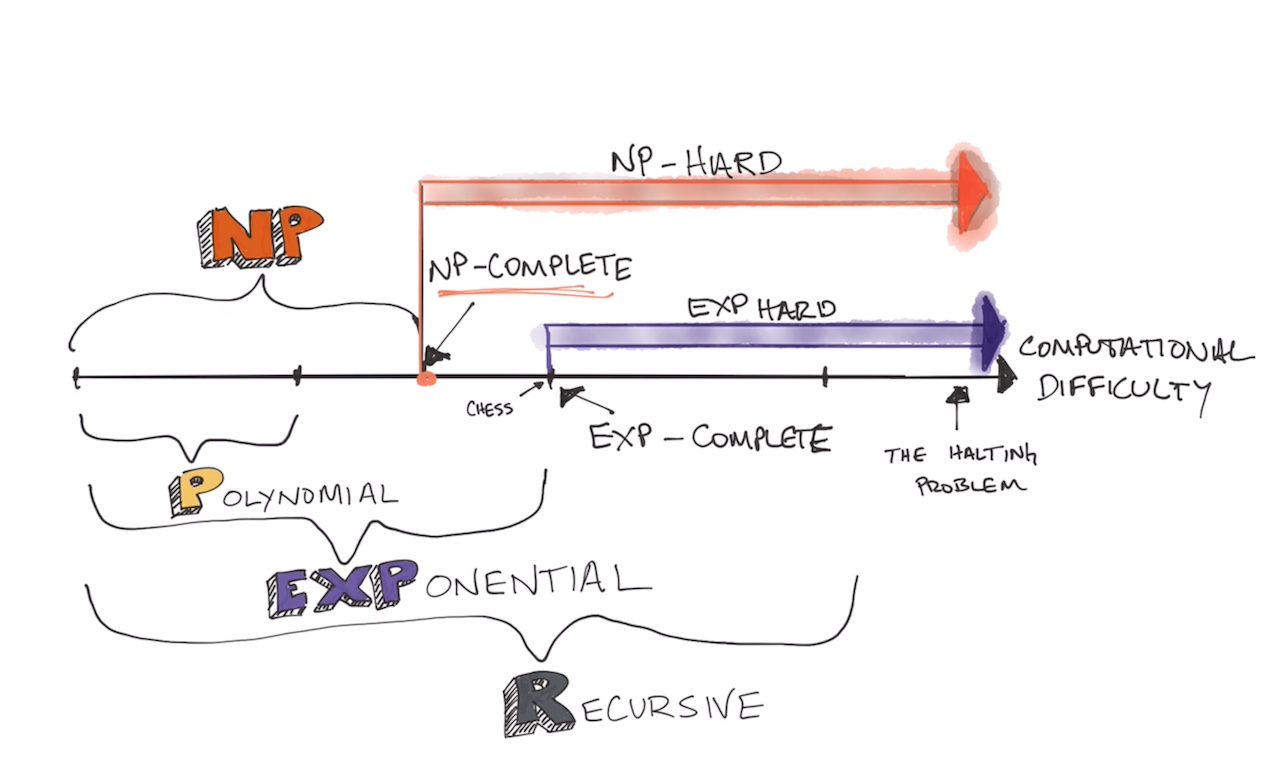 NP-HARD
NP
NP-COMPLETE
EXP HARD
COMPUTATIONAL
DIFFICULTY
CHESS
EXP-COMPLETE
THE HALTING
PROBLEM
POLYNOMIAL
EXPONENTIAL
RECURSIVE